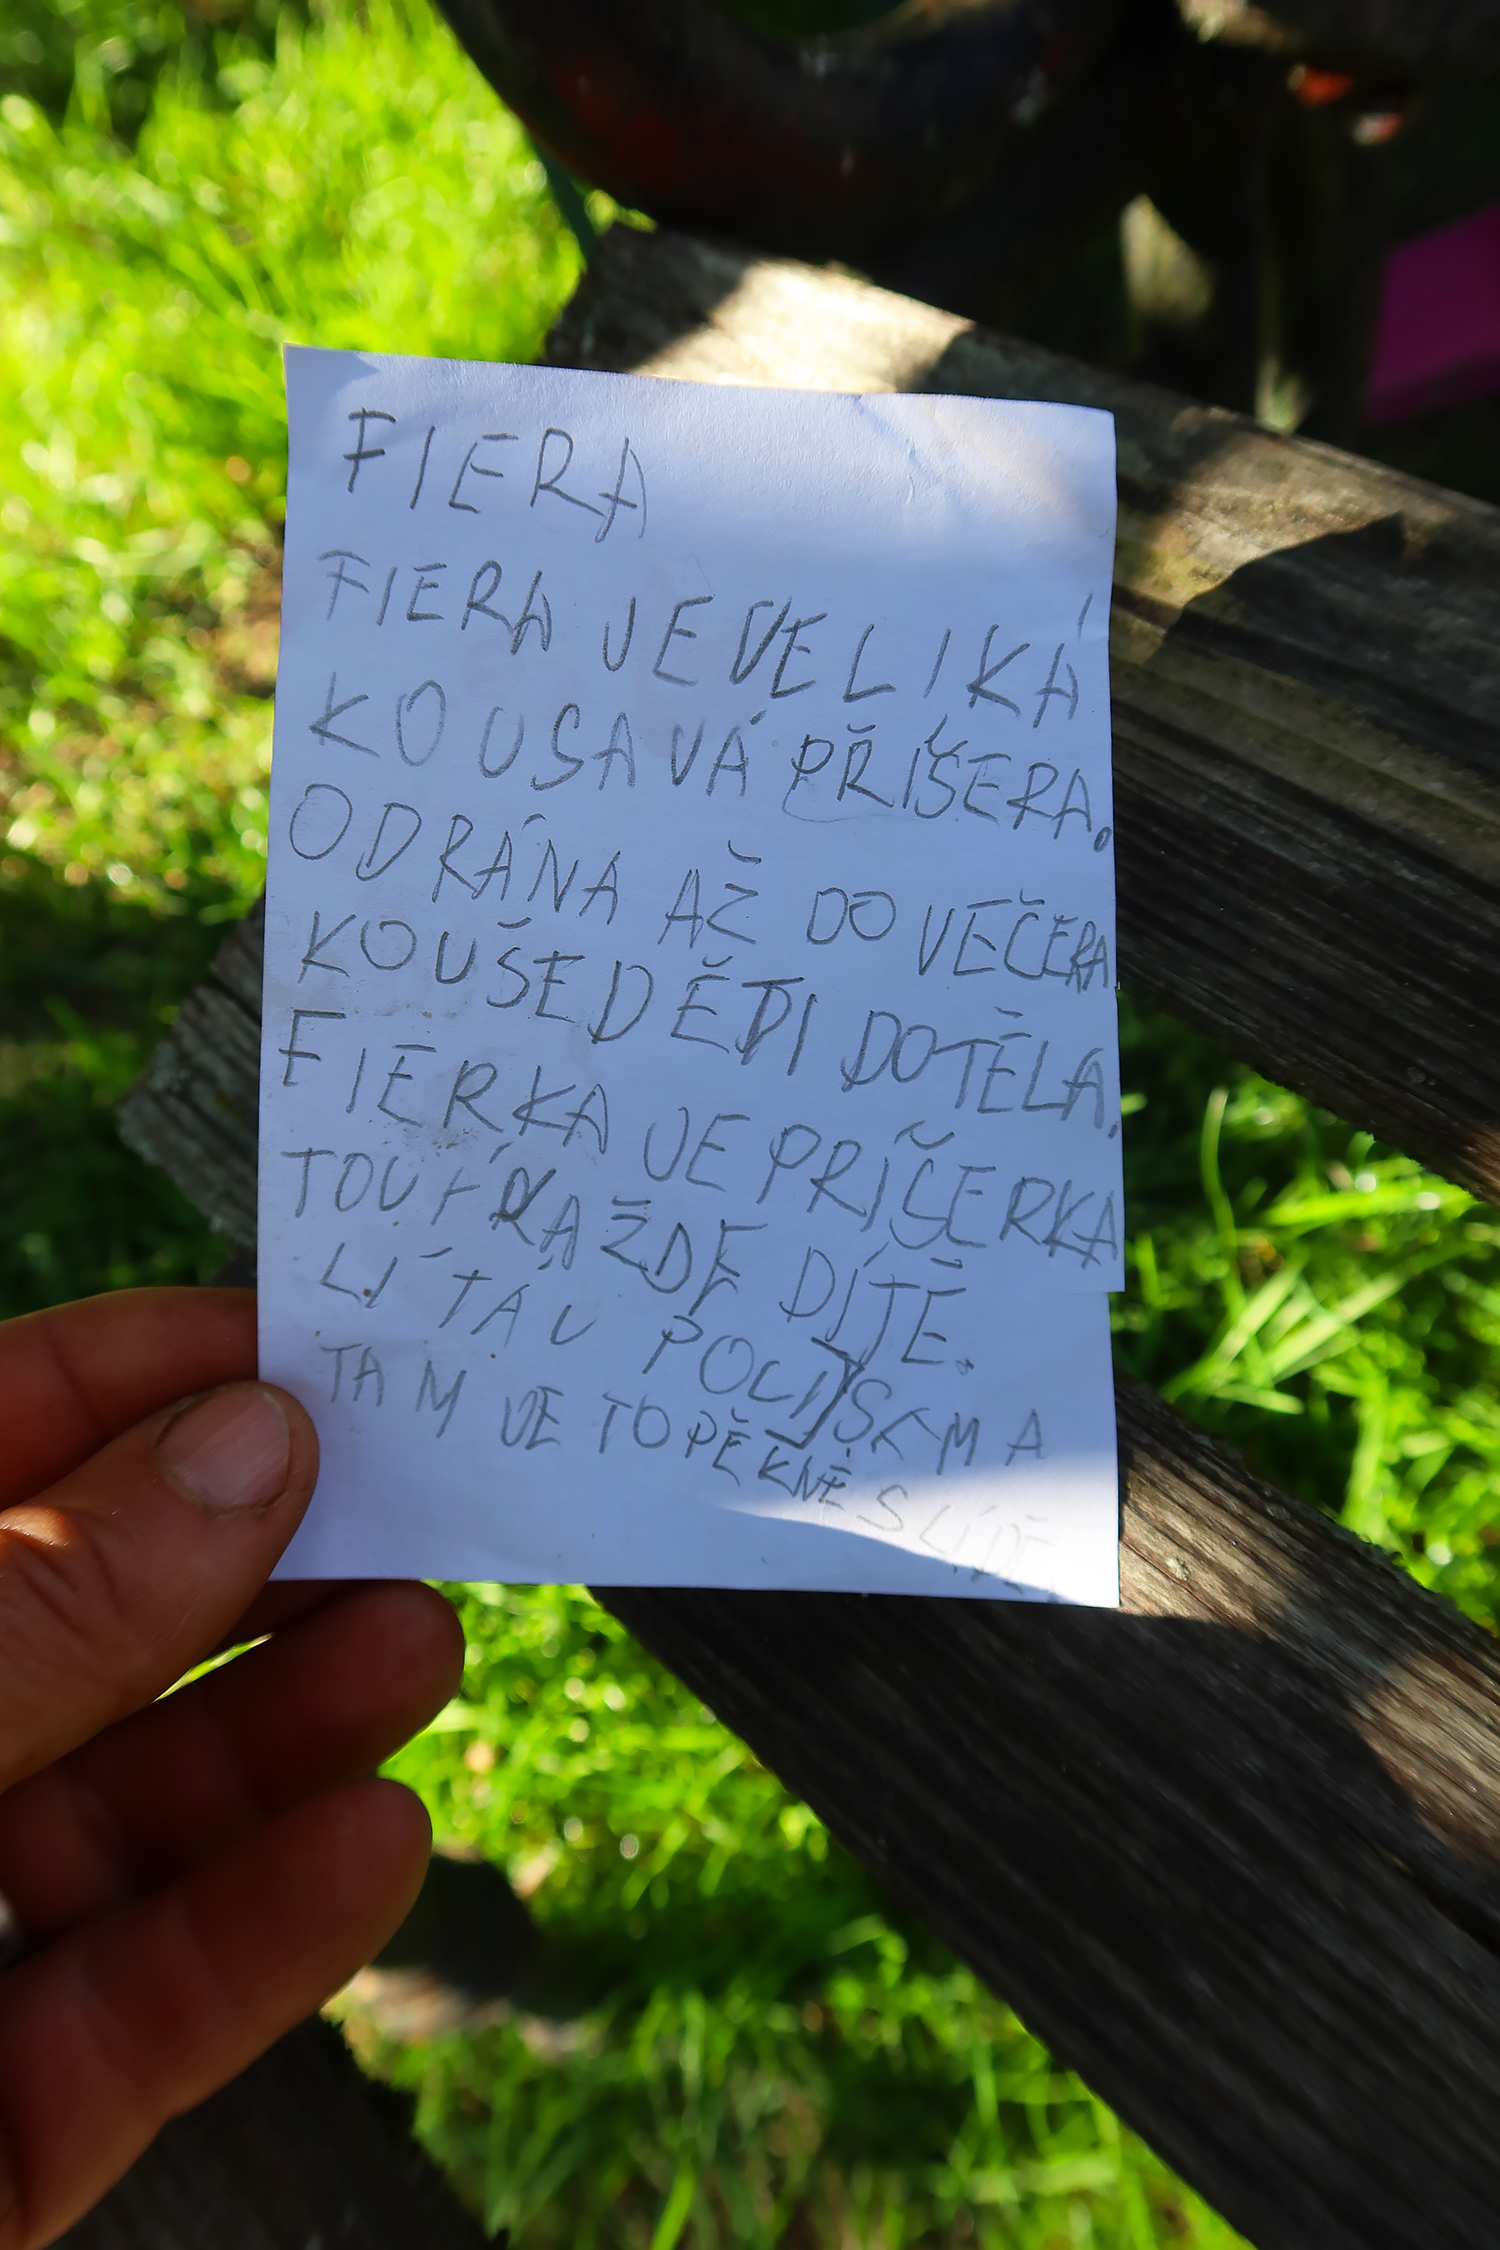 FIERA
FIERA JE VELIKÁ
KOUSAVÁ PŘÍŠERA.
ODRÁNA AŽ DO VEČERA
KOUŠE DĚTI DOTĚLA.
FIERKA JE PRÍŠERKA
TOUTÁ KAŽDE DÍTĚ.
LÍTÁ U
TAM JE TO PĚKNĚ SLÍDĚ.